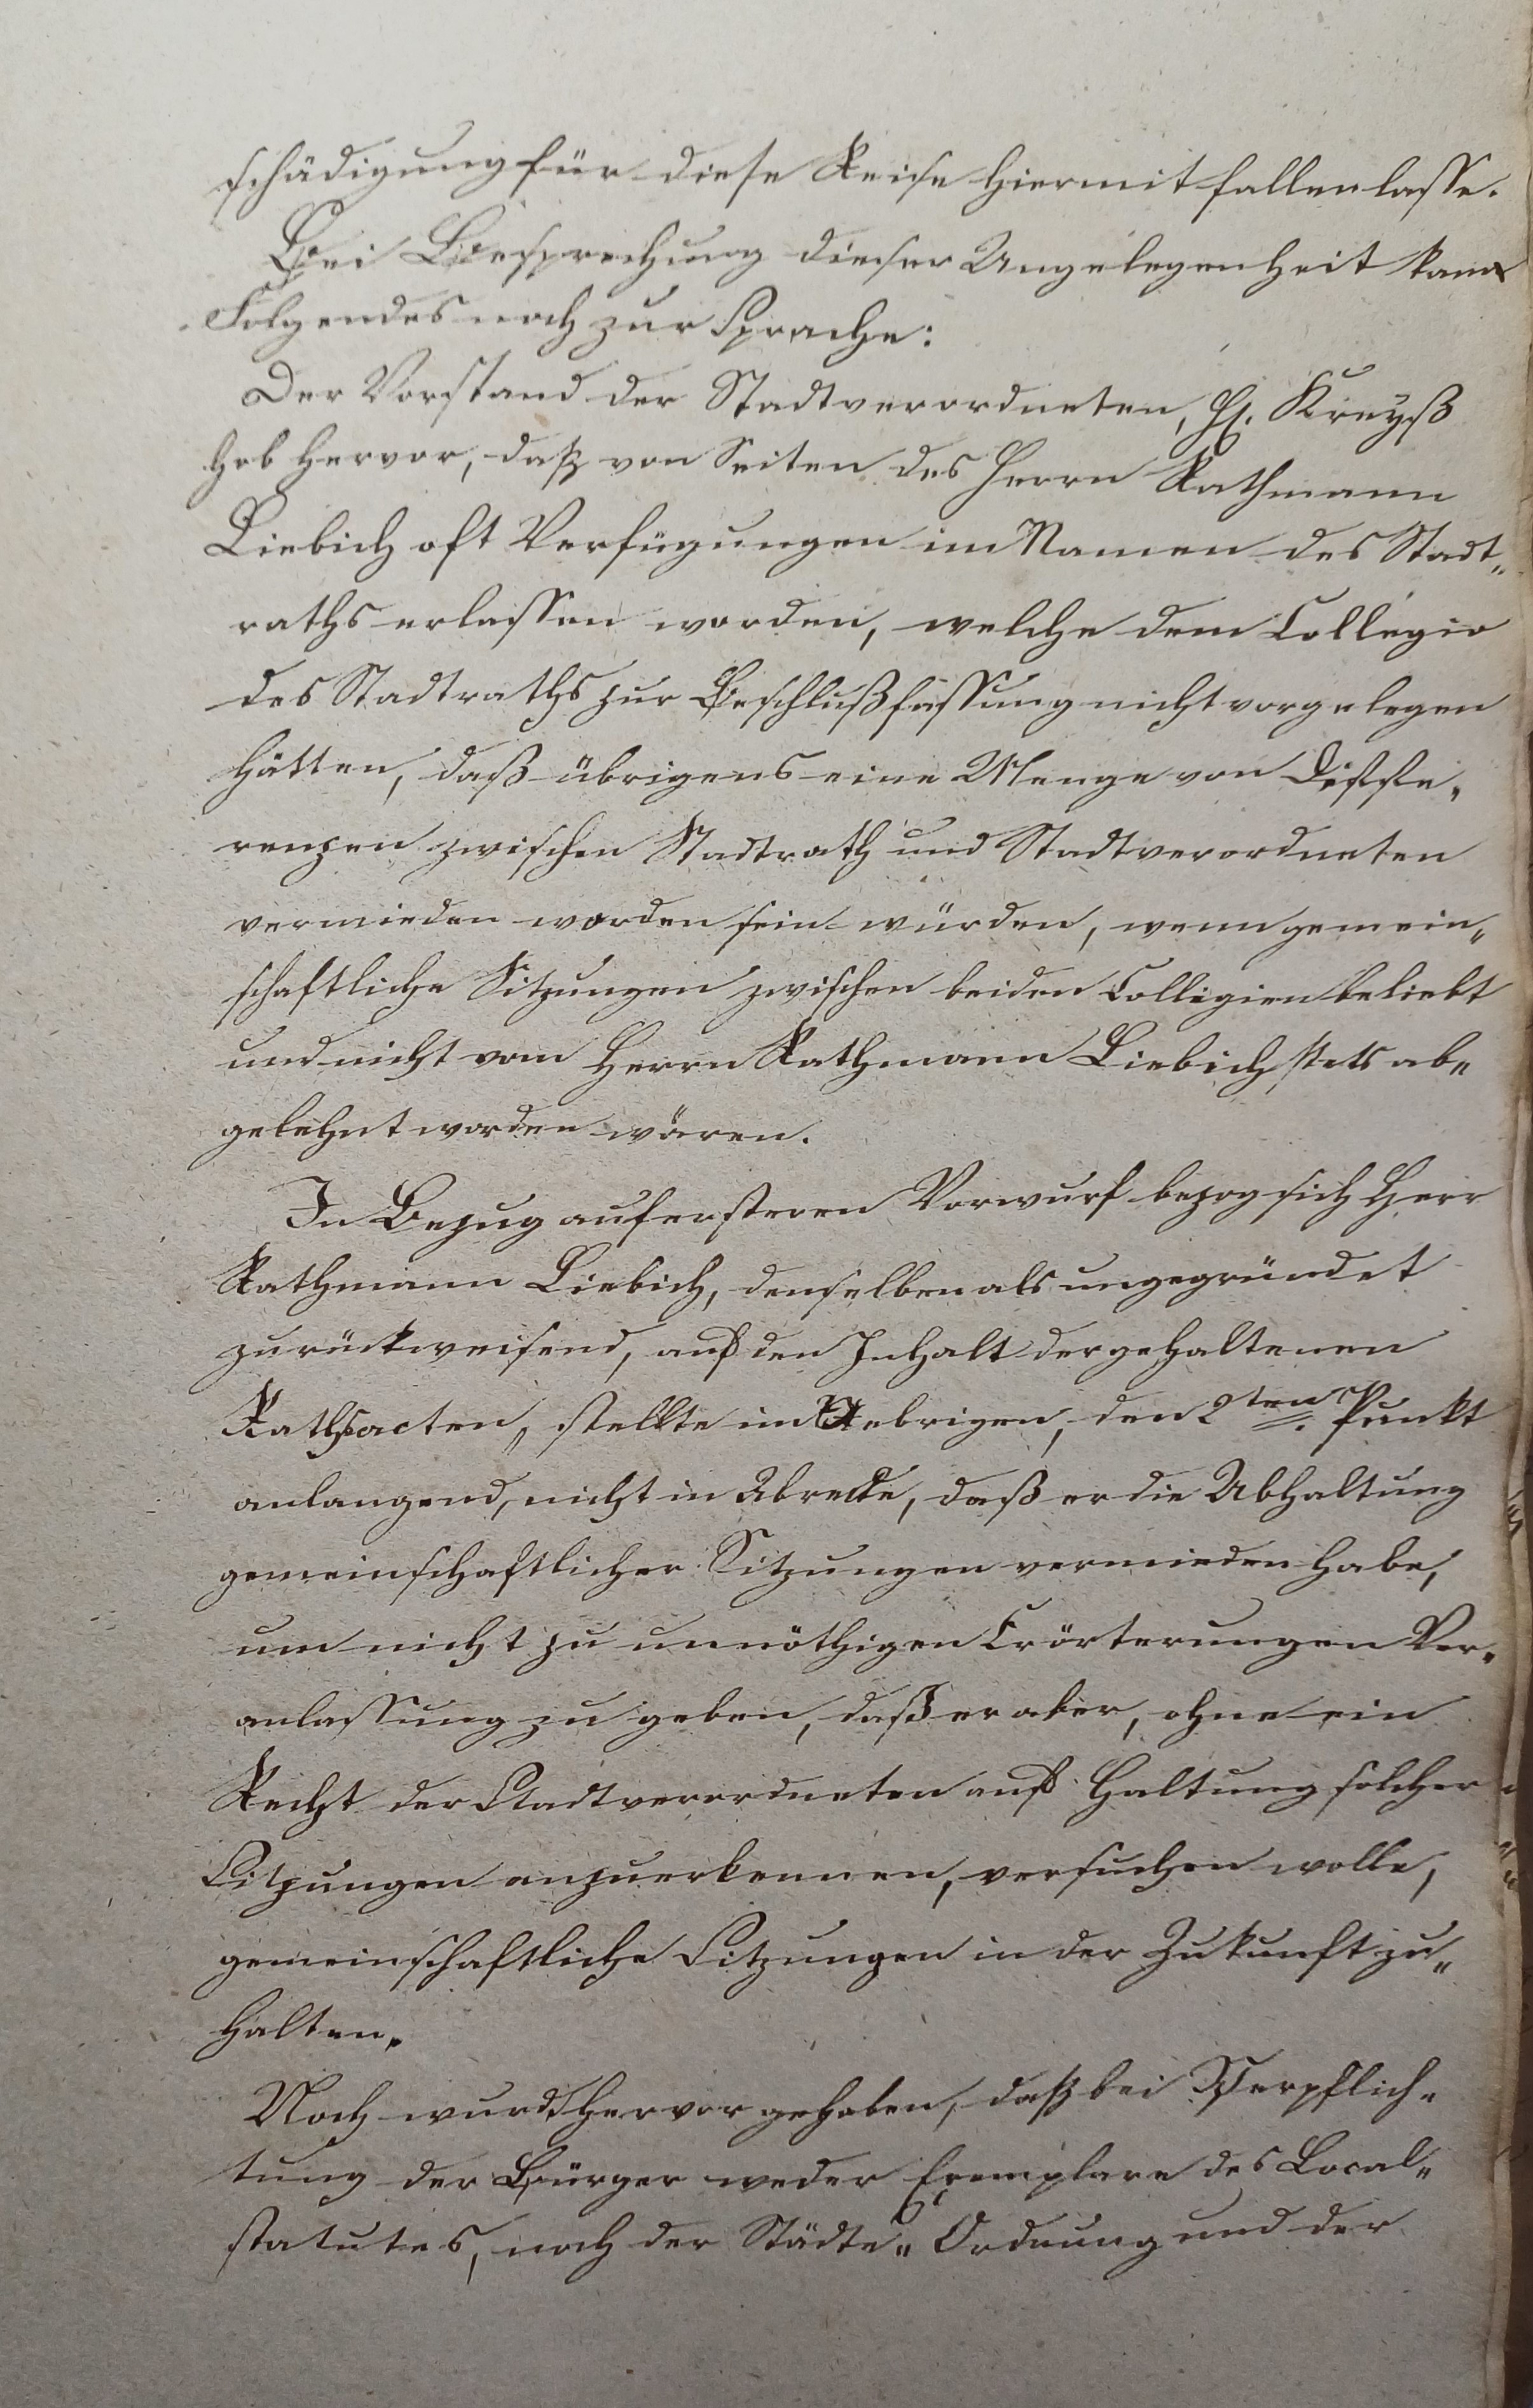 schädigung für diese Reise hiermit fallen lasse.
Bei Besprechung dieser Angelegenheit kam
Folgendes noch zur Sprache:
Der Vorstand der Stadtverordneten, H. Kreyß
hob hervor, daß von Seiten des Herrn Rathmann
Liebich oft Verfügungen im Namen des Stadt„
raths erlassen worden, welche dem Collegio
des Stadtraths zur Beschlußfassung nicht vorgelegen
hätten, daß übrigens eine Menge von Diffe„
renzen zwischen Stadtrath und Stadtverordneten
vermieden worden sein würden, wenn gemein„
schaftliche Sitzungen zwischen beiden Collegien beliebt
und nicht vom Herrn Rathmann Liebich stets ab„
gelehnt worden wären.
In Bezug auf ersteren Vorwurf bezog sich Herr
Rathmann Liebich, denselben als ungegründet
zurückweisend, auf den Inhalt der gehaltenen
Rathsacten, stellte im Uebrigen, den 2ten Punkt
anlangend, nicht in Abrede, daß er die Abhaltung
gemeinschaftlicher Sitzungen vermieden habe,
um nicht zu unnöthigen Erörterungen Ver„
anlassung zu geben, daß er aber, ohne ein
Recht der Stadtverordneten auf Haltung solcher
Sitzungen anzuerkennen, versuchen wolle,
gemeinschaftliche Sitzungen in der Zukunft zu„
halten.
Noch wurde hervorgehoben, daß bei Verpflich„
tung der Bürger weder Exemplare des Local„
statutes, noch der Städte„Ordnung und der